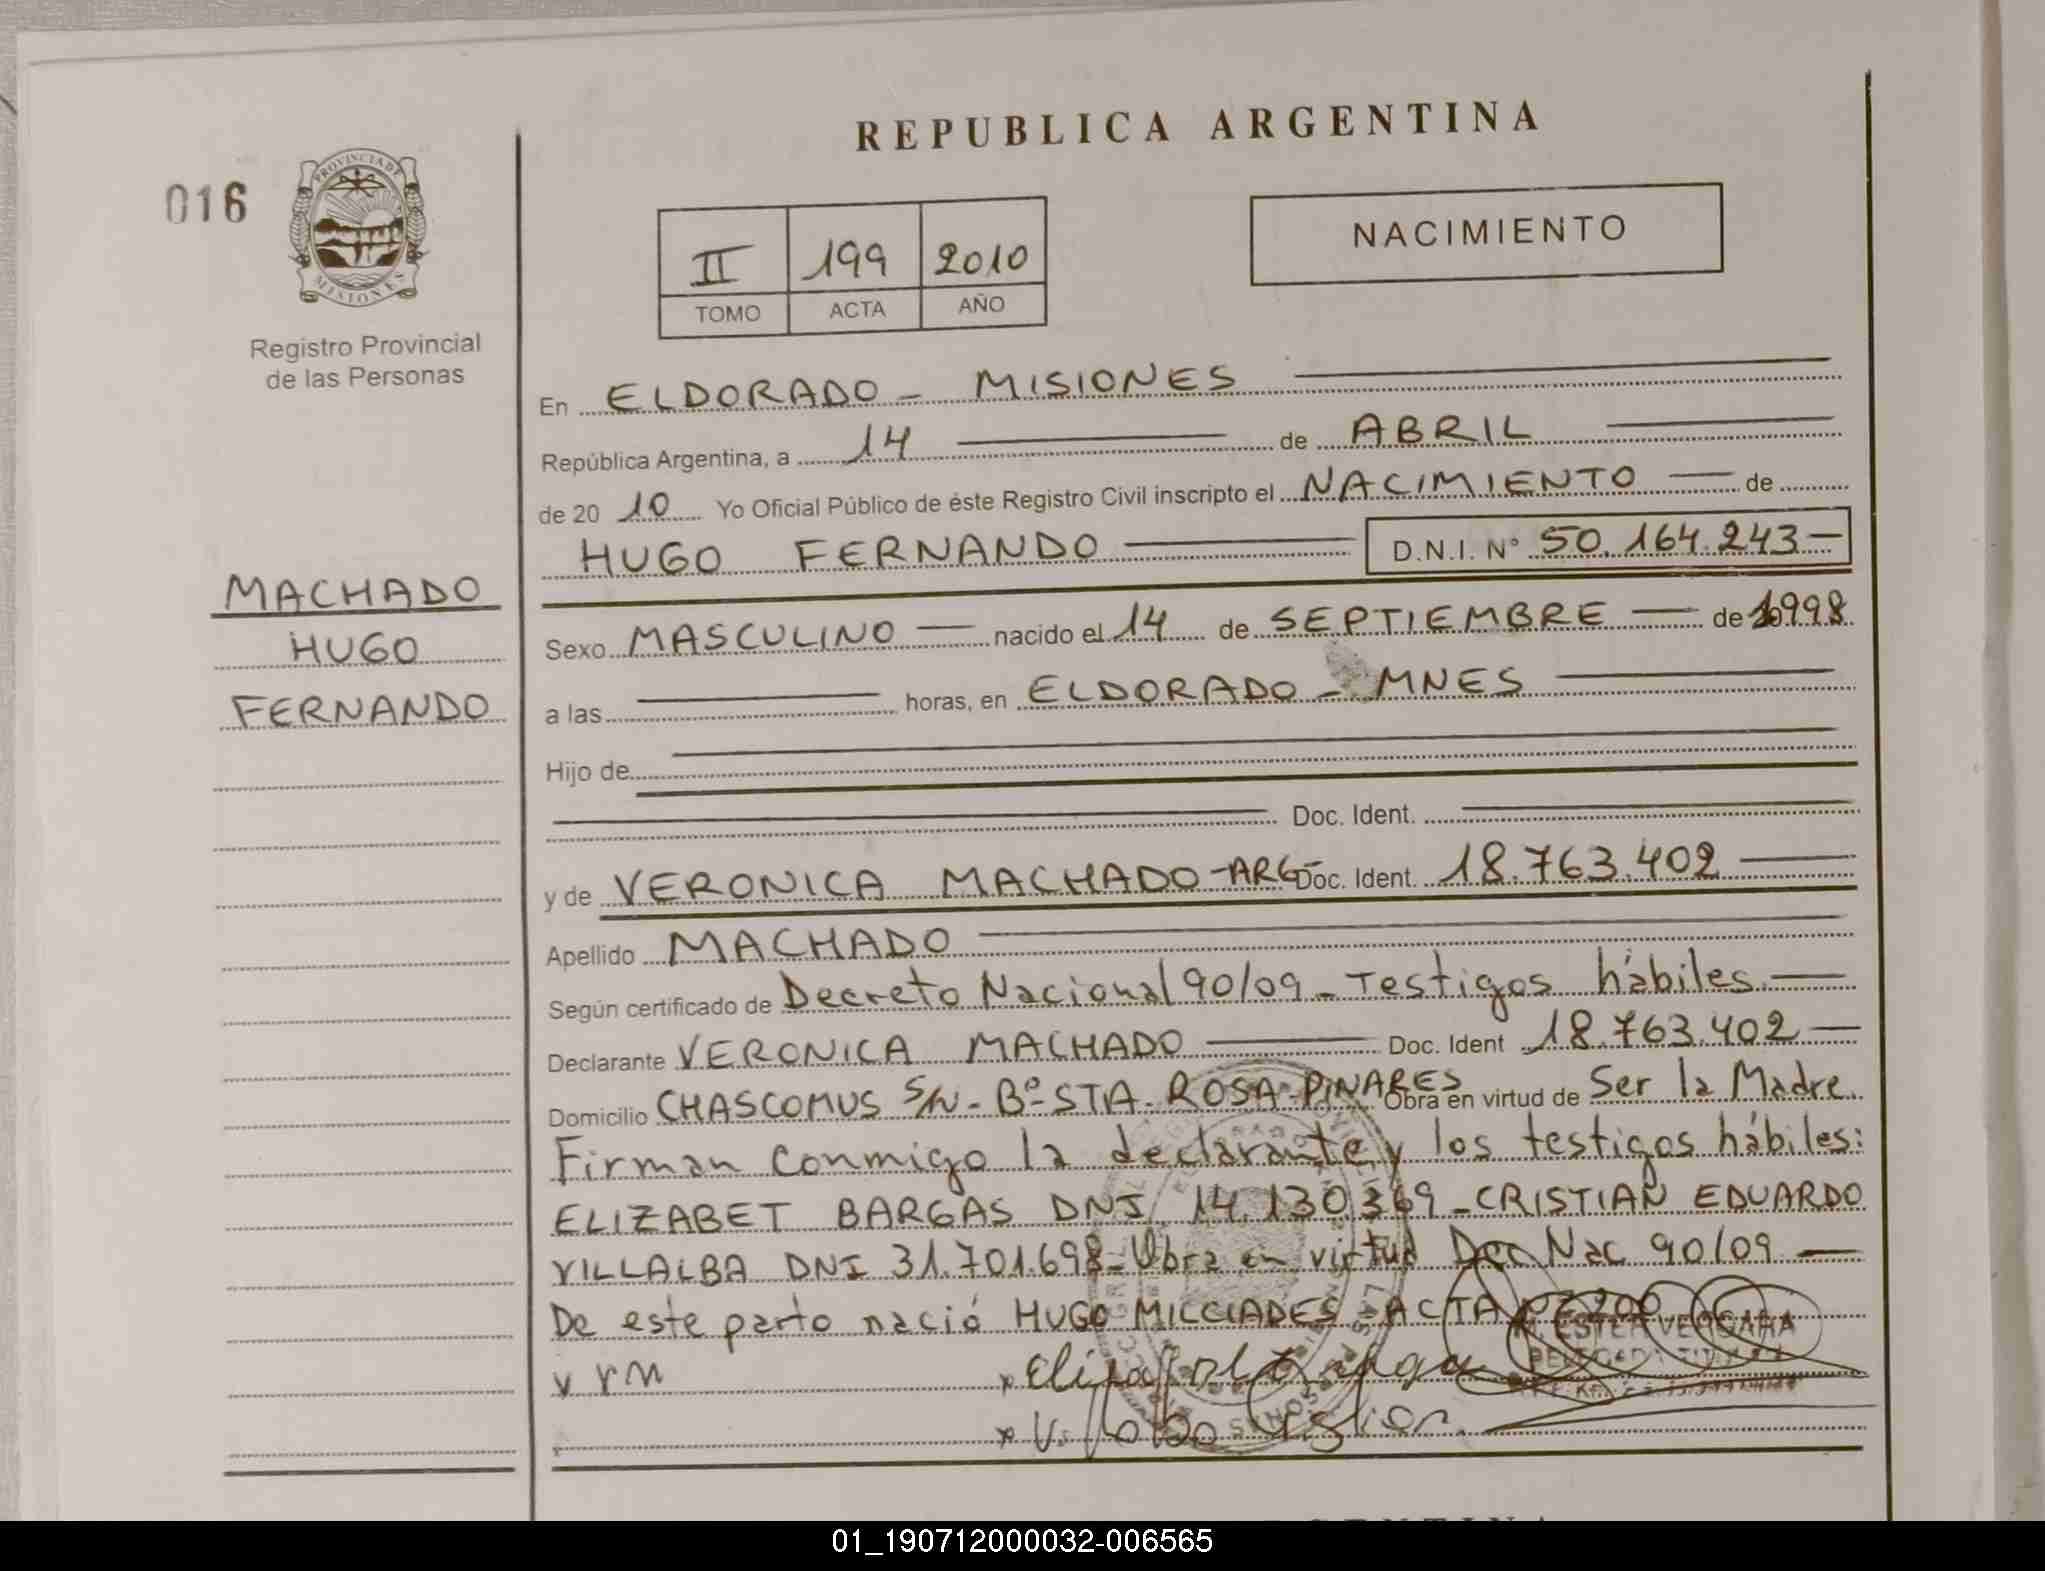 REPUBLICA ARGENTINA
016
PROVINCIA DE
MISIONES
Registro Provincial
de las Personas
II 199 2010
TOMO ACTA AÑO
NACIMIENTO
En ELDORADO - MISIONES
República Argentina, a 14 de ABRIL
de 20 10 Yo Oficial Público de éste Registro Civil inscripto el NACIMIENTO de
HUGO FERNANDO D.N.I. N° 50.164.243
MACHADO
HUGO
FERNANDO
Sexo MASCULINO nacido el 14 de SEPTIEMBRE de 1998
a las horas, en ELDORADO - MNES
Hijo de
Doc. Ident.
y de VERONICA MACHADO - ARG Doc. Ident. 18.763.402
Apellido MACHADO
Según certificado de Decreto Nacional 90/09 - Testigos hábiles.
Declarante VERONICA MACHADO Doc. Ident 18.763.402
Domicilio CHASCOMUS S/N - B° STA. ROSA - PINARES Obra en virtud de Ser la Madre.
Firman conmigo la declarante y los testigos hábiles:
ELIZABET BARGAS DNI 14.130.369 - CRISTIAN EDUARDO
VILLALBA DNI 31.701.698 - Obra en virtud Dec Nac 90/09
De este parto nació HUGO MILCIADES - ACTA 200
ESTER VERGARA
01_190712000032-006565